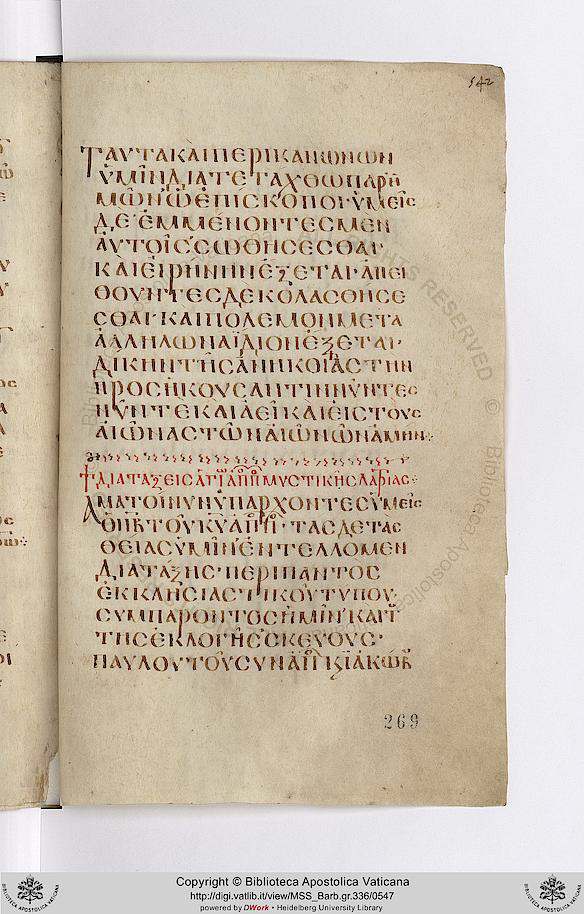 542
ΤΑΥΤΑΚΑΙΠΕΡΙΚΑΝΟΝΩΝ
ΥΜΙΝΔΙΑΤΕΤΑΧΘΩΠΑΡΗ
ΜΩΝΩΕΠΙΣΚΟΠΟΙΥΜΕΙΣ
ΔΕΕΜΜΕΝΟΝΤΕΣΜΕΝ
ΑΥΤΟΙΣΣΩΘΗΣΕΣΘΑΙ
ΚΑΙΕΙΡΗΝΗΝΕΞΕΤΑΙΑΠΕΙ
ΘΟΥΝΤΕΣΔΕΚΟΛΑΣΘΗΣΕ
ΣΘΑΙΚΑΙΠΟΛΕΜΟΝΜΕΤΑ
ΑΛΛΗΛΩΝΑΙΔΙΟΝΕΞΕΤΑΙ
ΔΙΚΗΝΤΗΣΑΝΗΚΟΙΑΣΤΗΝ
ΠΡΟΣΗΚΟΥΣΑΝΤΙΝΝΥΝΤΕΣ
ΝΥΝΤΕΚΑΙΑΕΙΚΑΙΕΙΣΤΟΥΣ
ΑΙΩΝΑΣΤΩΝΑΙΩΝΩΝΑΜΗΝ
ΔΙΑΤΑΞΕΙΣ ΜΥΣΤΙΚΗΣΛΑΤΡΙΑΣ
ΑΜΑΤΟΙΝΥΝΥΠΑΡΧΟΝΤΕΣΥΜΕΙΣ
ΤΑΣΔΕΤΑΣ
ΘΕΙΑΣΥΜΙΝΕΝΤΕΛΛΟΜΕΝ
ΔΙΑΤΑΞΗΣ·ΠΕΡΙΠΑΝΤΟΣ
ΕΚΚΛΗΣΙΑΣΤΙΚΟΥΤΥΠΟΥ
ΣΥΜΠΑΡΟΝΤΟΣΗΜΙΝΚΑΙΤ
ΤΗΣΕΚΛΟΓΗΣΣΚΕΥΟΥΣ·
ΠΑΥΛΟΥΤΟΥΣΥΝΑΠ ΙΑΚΩΒ
269
Copyright © Biblioteca Apostolica Vaticana
http://digi.vatlib.it/view/MSS_Barb.gr.336/0547
powered by DWork • Heidelberg University Library